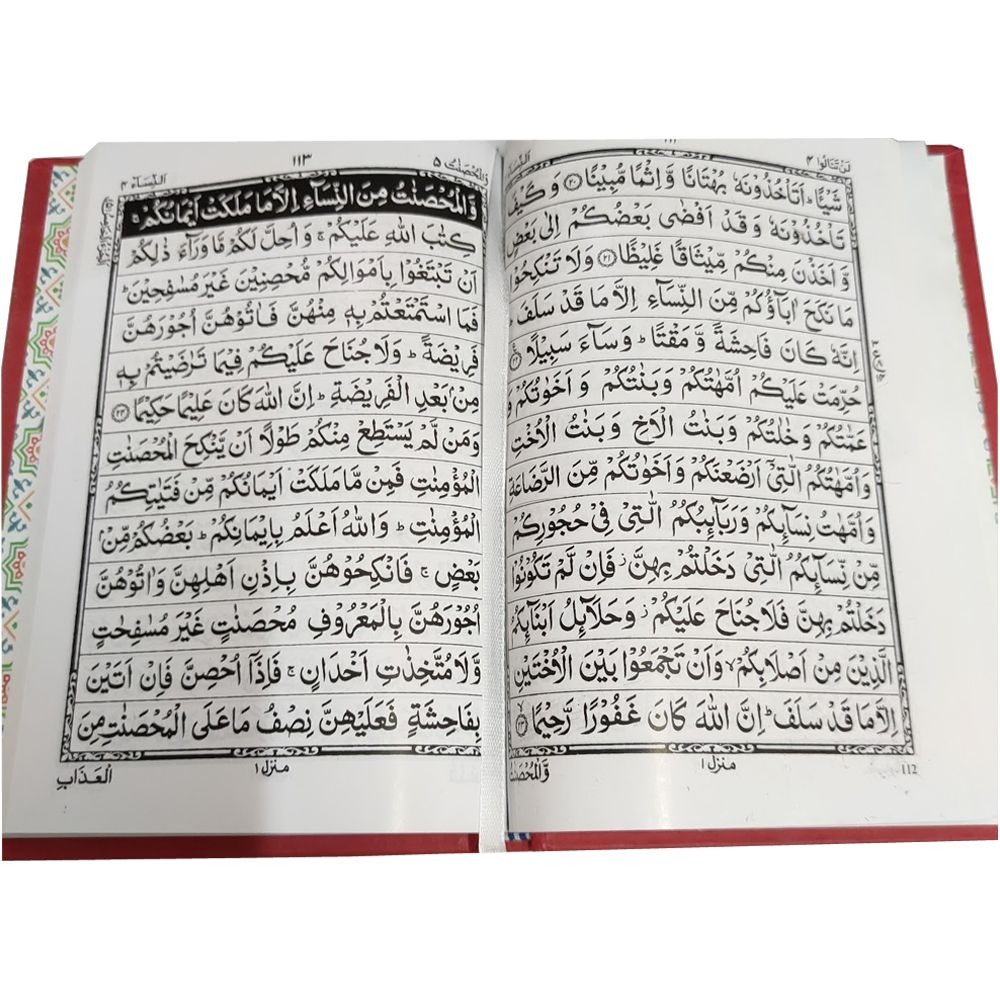 لن تنالوا ۴
النساء
شَيْئًا ؕ اَتَاْخُذُوْنَهٗ بُهْتَانًا وَّ اِثْمًا مُّبِيْنًا ﴿۲۰﴾ وَ كَيْفَ
تَاْخُذُوْنَهٗ وَ قَدْ اَفْضٰى بَعْضُكُمْ اِلٰى بَعْضٍ
وَّ اَخَذْنَ مِنْكُمْ مِّيْثَاقًا غَلِيْظًا ﴿۲۱﴾ وَلَا تَنْكِحُوْا
مَا نَكَحَ اٰبَآؤُكُمْ مِّنَ النِّسَآءِ اِلَّا مَا قَدْ سَلَفَ ؕ
اِنَّهٗ كَانَ فَاحِشَةً وَّ مَقْتًا ؕ وَسَآءَ سَبِيْلًا ﴿۲۲﴾
حُرِّمَتْ عَلَيْكُمْ اُمَّهٰتُكُمْ وَبَنٰتُكُمْ وَ اَخَوٰتُكُمْ وَ
عَمّٰتُكُمْ وَ خٰلٰتُكُمْ وَ بَنٰتُ الْاَخِ وَ بَنٰتُ الْاُخْتِ
وَ اُمَّهٰتُكُمُ الّٰتِيْۤ اَرْضَعْنَكُمْ وَ اَخَوٰتُكُمْ مِّنَ الرَّضَاعَةِ
وَ اُمَّهٰتُ نِسَآىِٕكُمْ وَ رَبَآىِٕبُكُمُ الّٰتِيْ فِيْ حُجُوْرِكُمْ
مِّنْ نِّسَآىِٕكُمُ الّٰتِيْ دَخَلْتُمْ بِهِنَّ ز فَاِنْ لَّمْ تَكُوْنُوْا
دَخَلْتُمْ بِهِنَّ فَلَا جُنَاحَ عَلَيْكُمْ ز وَ حَلَآىِٕلُ اَبْنَآىِٕكُمُ
الَّذِيْنَ مِنْ اَصْلَابِكُمْ ۙ وَ اَنْ تَجْمَعُوْا بَيْنَ الْاُخْتَيْنِ
اِلَّا مَا قَدْ سَلَفَ ؕ اِنَّ اللّٰهَ كَانَ غَفُوْرًا رَّحِيْمًا ﴿۲۳﴾
112
منزل ۱
وَّالْمُحْصَنٰتُ
والمحصنت ۵
۱۱۳
النساء ۴
وَّ الْمُحْصَنٰتُ مِنَ النِّسَآءِ اِلَّا مَا مَلَكَتْ اَيْمَانُكُمْ ۚ
كِتٰبَ اللّٰهِ عَلَيْكُمْ ۚ وَ اُحِلَّ لَكُمْ مَّا وَرَآءَ ذٰلِكُمْ
اَنْ تَبْتَغُوْا بِاَمْوَالِكُمْ مُّحْصِنِيْنَ غَيْرَ مُسٰفِحِيْنَ ؕ
فَمَا اسْتَمْتَعْتُمْ بِهٖ مِنْهُنَّ فَاٰتُوْهُنَّ اُجُوْرَهُنَّ
فَرِيْضَةً ؕ وَلَا جُنَاحَ عَلَيْكُمْ فِيْمَا تَرٰضَيْتُمْ بِهٖ
مِنْۢ بَعْدِ الْفَرِيْضَةِ ؕ اِنَّ اللّٰهَ كَانَ عَلِيْمًا حَكِيْمًا ﴿۲۴﴾
وَمَنْ لَّمْ يَسْتَطِعْ مِنْكُمْ طَوْلًا اَنْ يَّنْكِحَ الْمُحْصَنٰتِ
الْمُؤْمِنٰتِ فَمِنْ مَّا مَلَكَتْ اَيْمَانُكُمْ مِّنْ فَتَيٰتِكُمُ
الْمُؤْمِنٰتِ ؕ وَاللّٰهُ اَعْلَمُ بِاِيْمَانِكُمْ ؕ بَعْضُكُمْ مِّنْۢ
بَعْضٍ ۚ فَانْكِحُوْهُنَّ بِاِذْنِ اَهْلِهِنَّ وَ اٰتُوْهُنَّ
اُجُوْرَهُنَّ بِالْمَعْرُوْفِ مُحْصَنٰتٍ غَيْرَ مُسٰفِحٰتٍ
وَّلَا مُتَّخِذٰتِ اَخْدَانٍ ۚ فَاِذَاۤ اُحْصِنَّ فَاِنْ اَتَيْنَ
بِفَاحِشَةٍ فَعَلَيْهِنَّ نِصْفُ مَا عَلَى الْمُحْصَنٰتِ مِنَ
منزل ۱
الْعَذَابِ